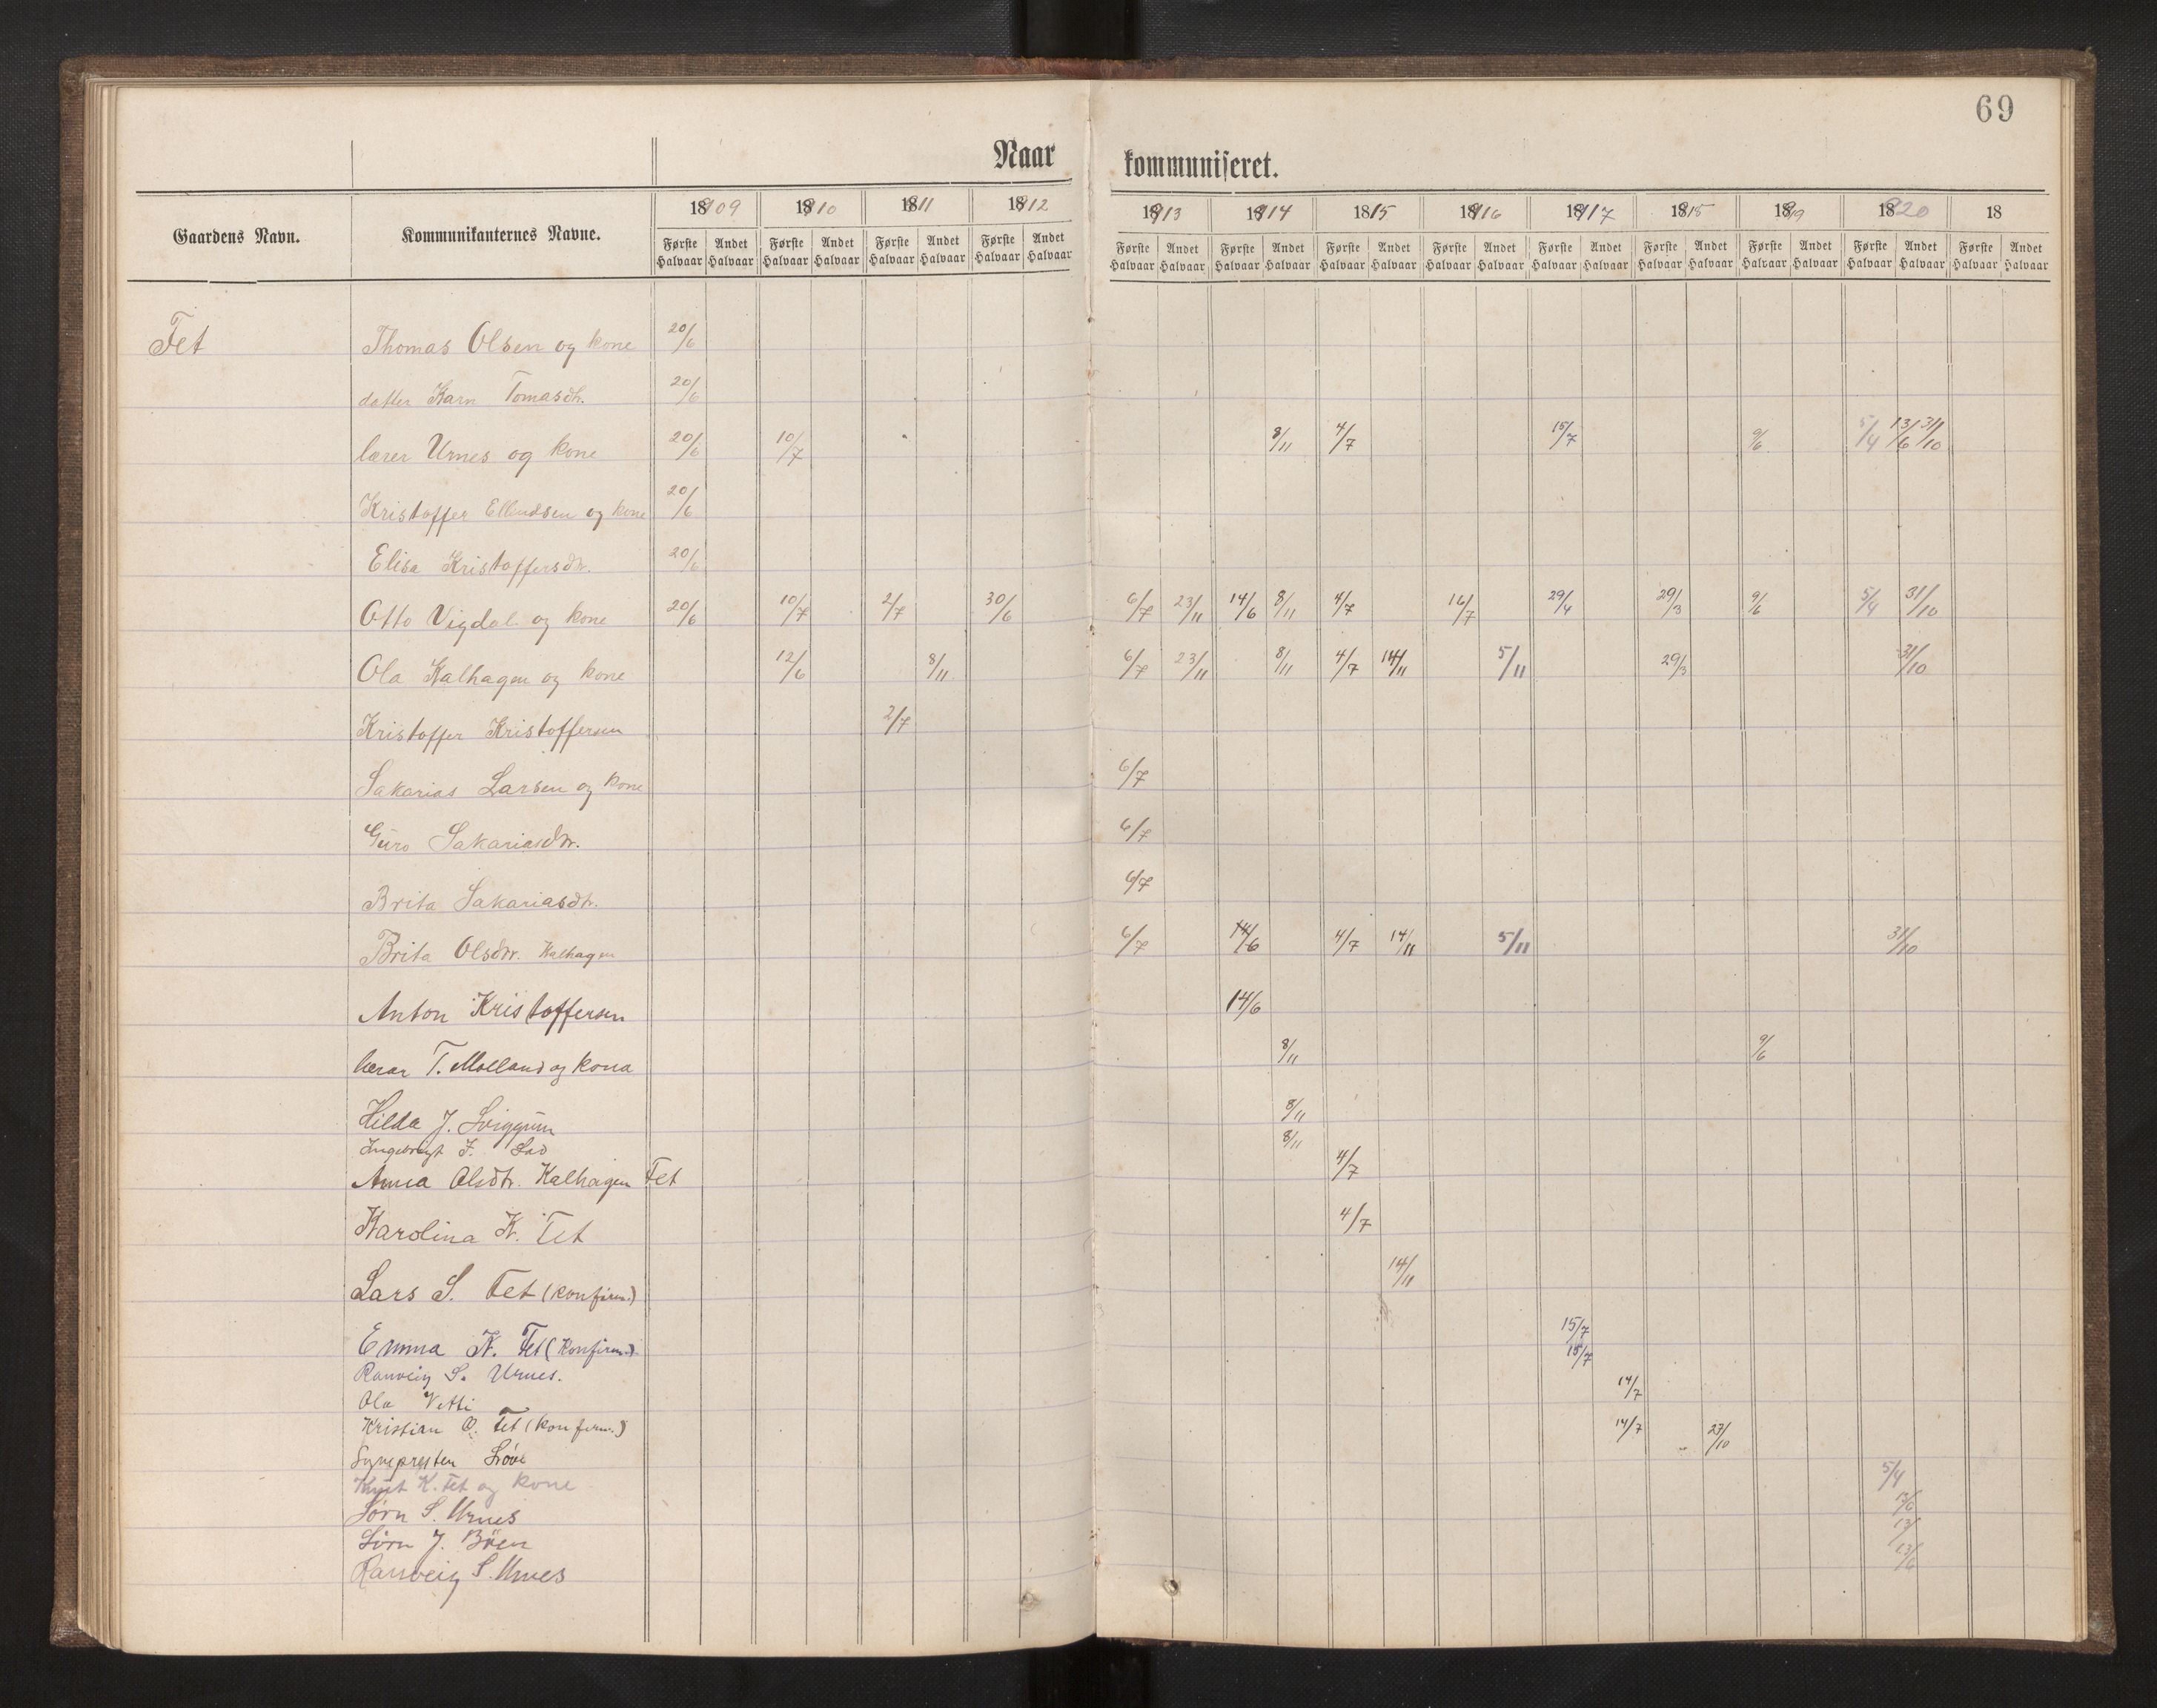 69
Naar kommuniseret.
Gaardens Navn. Kommunikanternes Navne. 1909 1910 1911 1912 1913 1914 1815 1916 1917 1818 1919 1920 18
Første Halvaar Andet Halvaar Første Halvaar Andet Halvaar Første Halvaar Andet Halvaar Første Halvaar Andet Halvaar Første Halvaar Andet Halvaar Første Halvaar Andet Halvaar Første Halvaar Andet Halvaar Første Halvaar Andet Halvaar Første Halvaar Andet Halvaar Første Halvaar Andet Halvaar Første Halvaar Andet Halvaar Første Halvaar Andet Halvaar Første Halvaar Andet Halvaar
Fet Thomas Olsen og kone 20/6
datter Karn Tomasdtr. 20/6
lærer Urnes og kone 20/6 10/7 8/11 4/7 15/7 9/6 5/4 13/6 31/10
Kristoffer Ellendsen og kone 20/6
Elisa Kristoffersdtr. 20/6
Otto Vigdal og kone 20/6 10/7 2/7 30/6 6/7 23/11 14/6 8/11 4/7 16/7 29/4 29/3 9/6 5/4 31/10
Ola Kalhagen og kone 12/6 8/11 6/7 23/11 8/11 4/7 14/11 5/11 29/3 31/10
Kristoffer Kristoffersen 2/7
Sakarias Larsen og kone 6/7
Guro Sakariasdtr. 6/7
Brita Sakariasdtr. 6/7
Brita Olsdtr. Kalhagen 6/7 14/6 4/7 14/11 5/11 31/10
Anton Kristoffersen 14/6
lærar T. Molland og kona 8/11 9/6
Hilda J. Sviggum 8/11
Ingebrigt J. 8/11
Anna Olsdtr. Kalhagen Fet 4/7
Karolina K. Fet 4/7
Lars S. Fet (konfirm.) 14/11
Emma K. Fet (Konfirm.) 15/7
Ranveig S. Urnes. 15/7
Ola Vetti 14/7
Kristian O. Fet (konfirm.) 14/7 27/10
Synepresten
Knut K. Fet og kone 5/4
Sørn S. Urnes 13/6
Sørn J. Bøen 13/
Ranveig S. Urnes 13/6